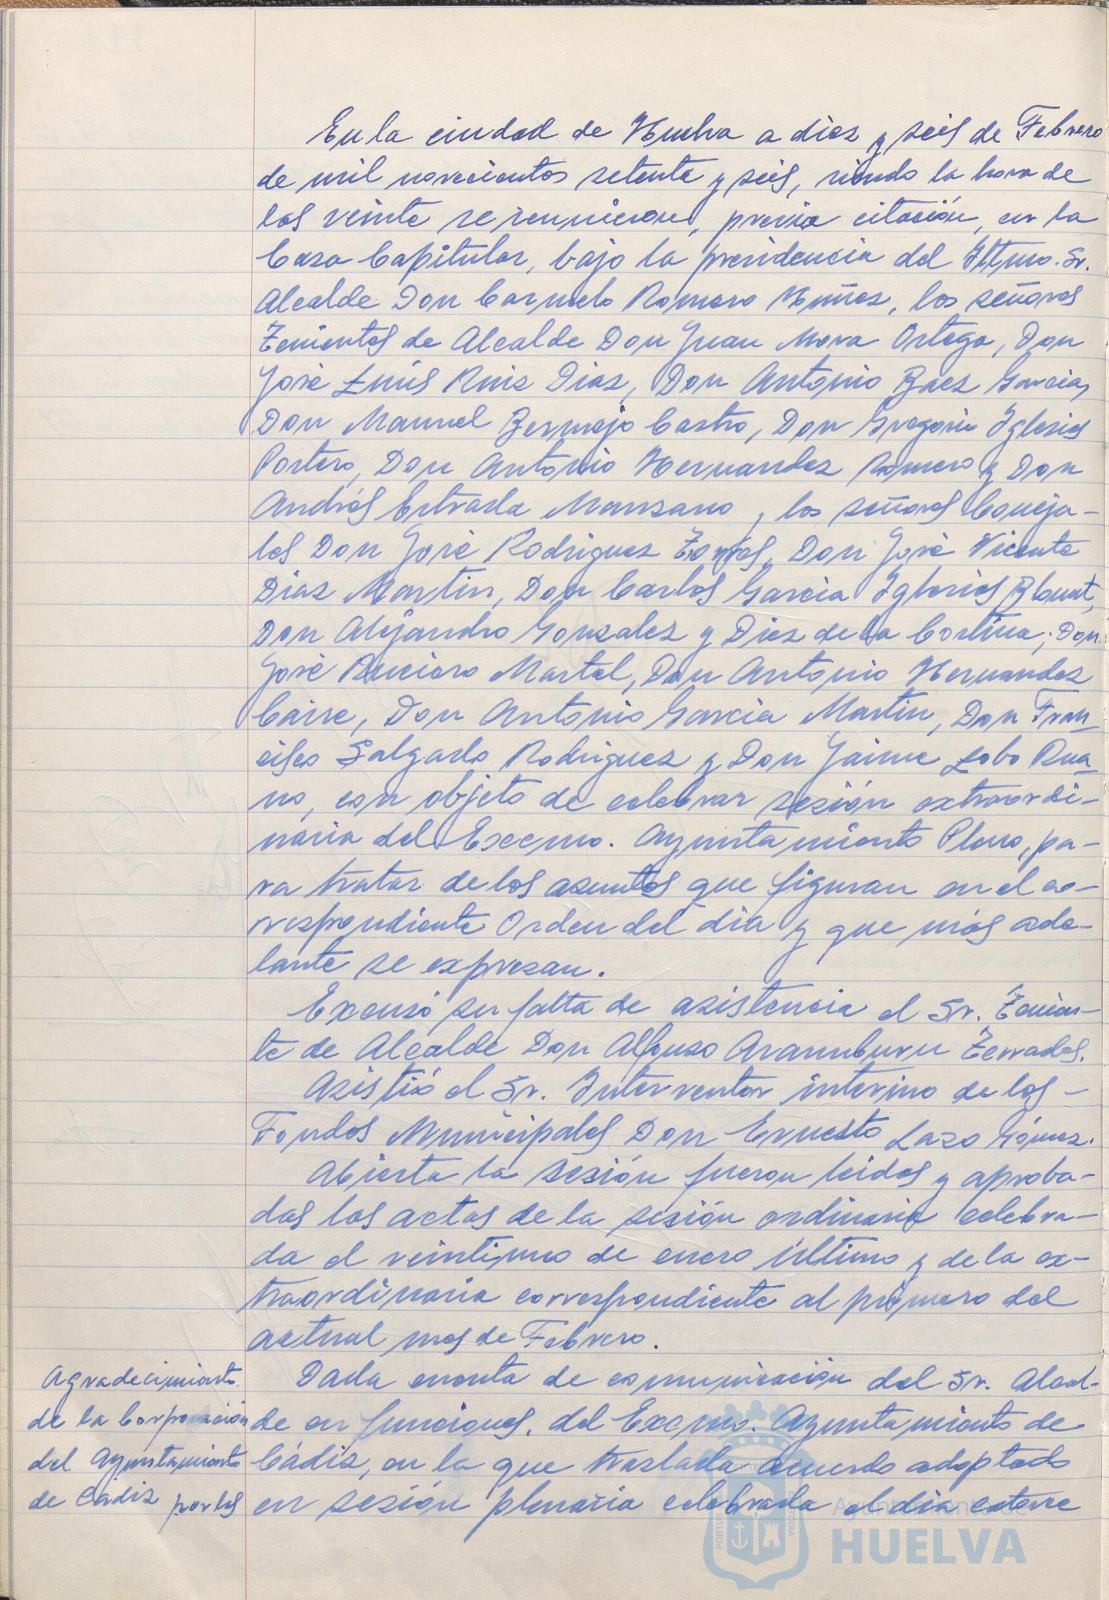 En la ciudad de Huelva a diez y seis de Febrero
de mil novecientos setenta y seis, siendo la hora de
las veinte se reunieron, previa citación, en la
Casa Capitular, bajo la presidencia del Iltmo. Sr.
Alcalde Don Carmelo Romero Núñez, los señores
Tenientes de Alcalde Don Juan Mora Ortega, Don
José Luis Ruiz Diaz, Don Antonio Baez Garcia,
Don Manuel Bermejo Castro, Don Gregorio Iglesias
Portero, Don Antonio Hernandez Romero y Don
Andrés Estrada Manzano y los señores Conceja-
les Don José Rodriguez Don José Vicente
Diaz Martin, Don Carlos Garcia Iglesias Blount,
Don Alejandro Gonzalez y Diez de la Cortina, Don
José Ruciero Martel, Don Antonio Hernandez
Don Antonio Garcia Martin, Don Fran-
cisco Salgado Rodriguez y Don Jaime Lobo Rua-
no, con objeto de celebrar sesión extraordi-
naria del Excmo. Ayuntamiento Pleno, pa-
ra tratar de los asuntos que figuran en el co-
rrespondiente Orden del dia y que más ade-
lante se expresan.
Excusó su falta de asistencia el Sr. Tenien-
te de Alcalde Don Alfonso Aramburu Terrades.
Asistió el Sr. Interventor interino de los -
Fondos Municipales Don Ernesto Lazo Gómez.
Abierta la sesión fueron leidas y aproba-
das las actas de la sesión ordinaria celebra-
da el veintiuno de enero último y de la ex-
traordinaria correspondiente al primero del
actual mes de Febrero.
Agradecimiento
de la Corporación
del Ayuntamiento
de Cádiz por los
Dada cuenta de comunicación del Sr. Alcal-
de en funciones, del Excmo. Ayuntamiento de
Cádiz, en la que traslada acuerdo adoptado
en sesión plenaria celebrada el dia catorce
Ayuntamiento de
HUELVA